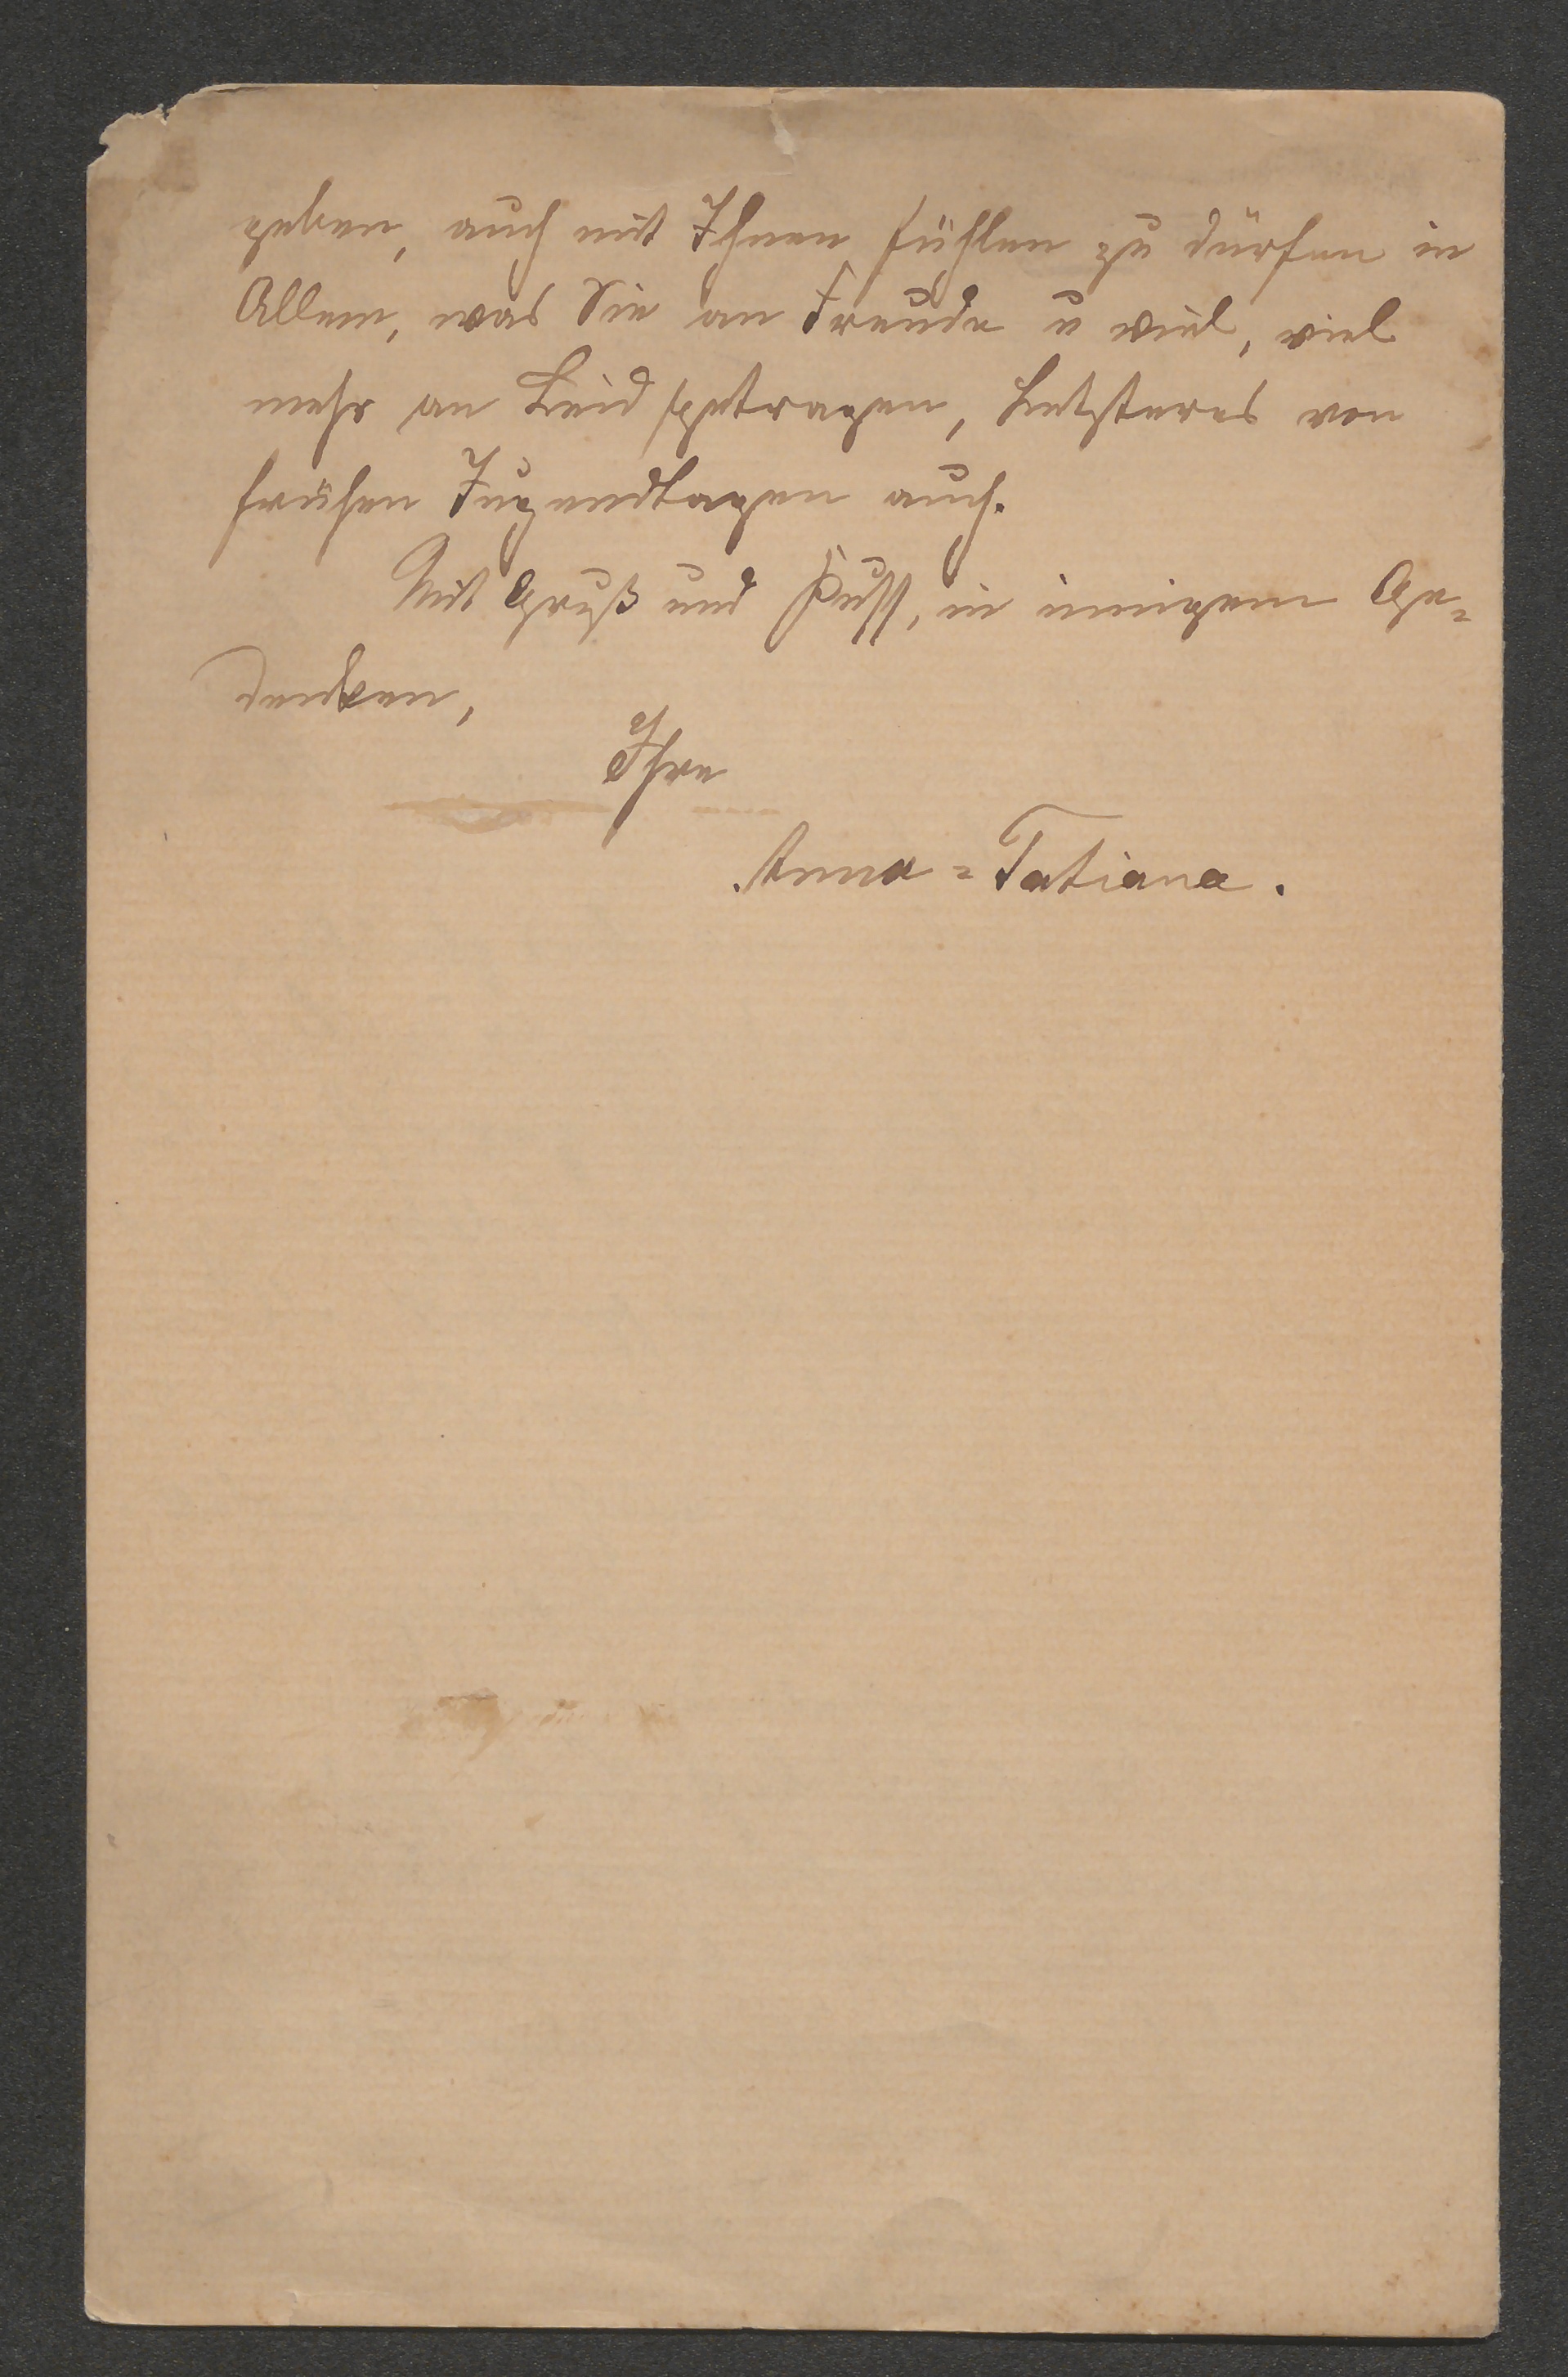 geben, auch mit Ihnen fühlen zu dürfen in
Allem, was Sie an Freude u viel, viel
mehr an Leid getragen, Letzteres von
frühen Jugendtagen auch.
Mit Gruß und Kuss, in innigem Ge=
denken,
Ihre
Anna=Tatiana.